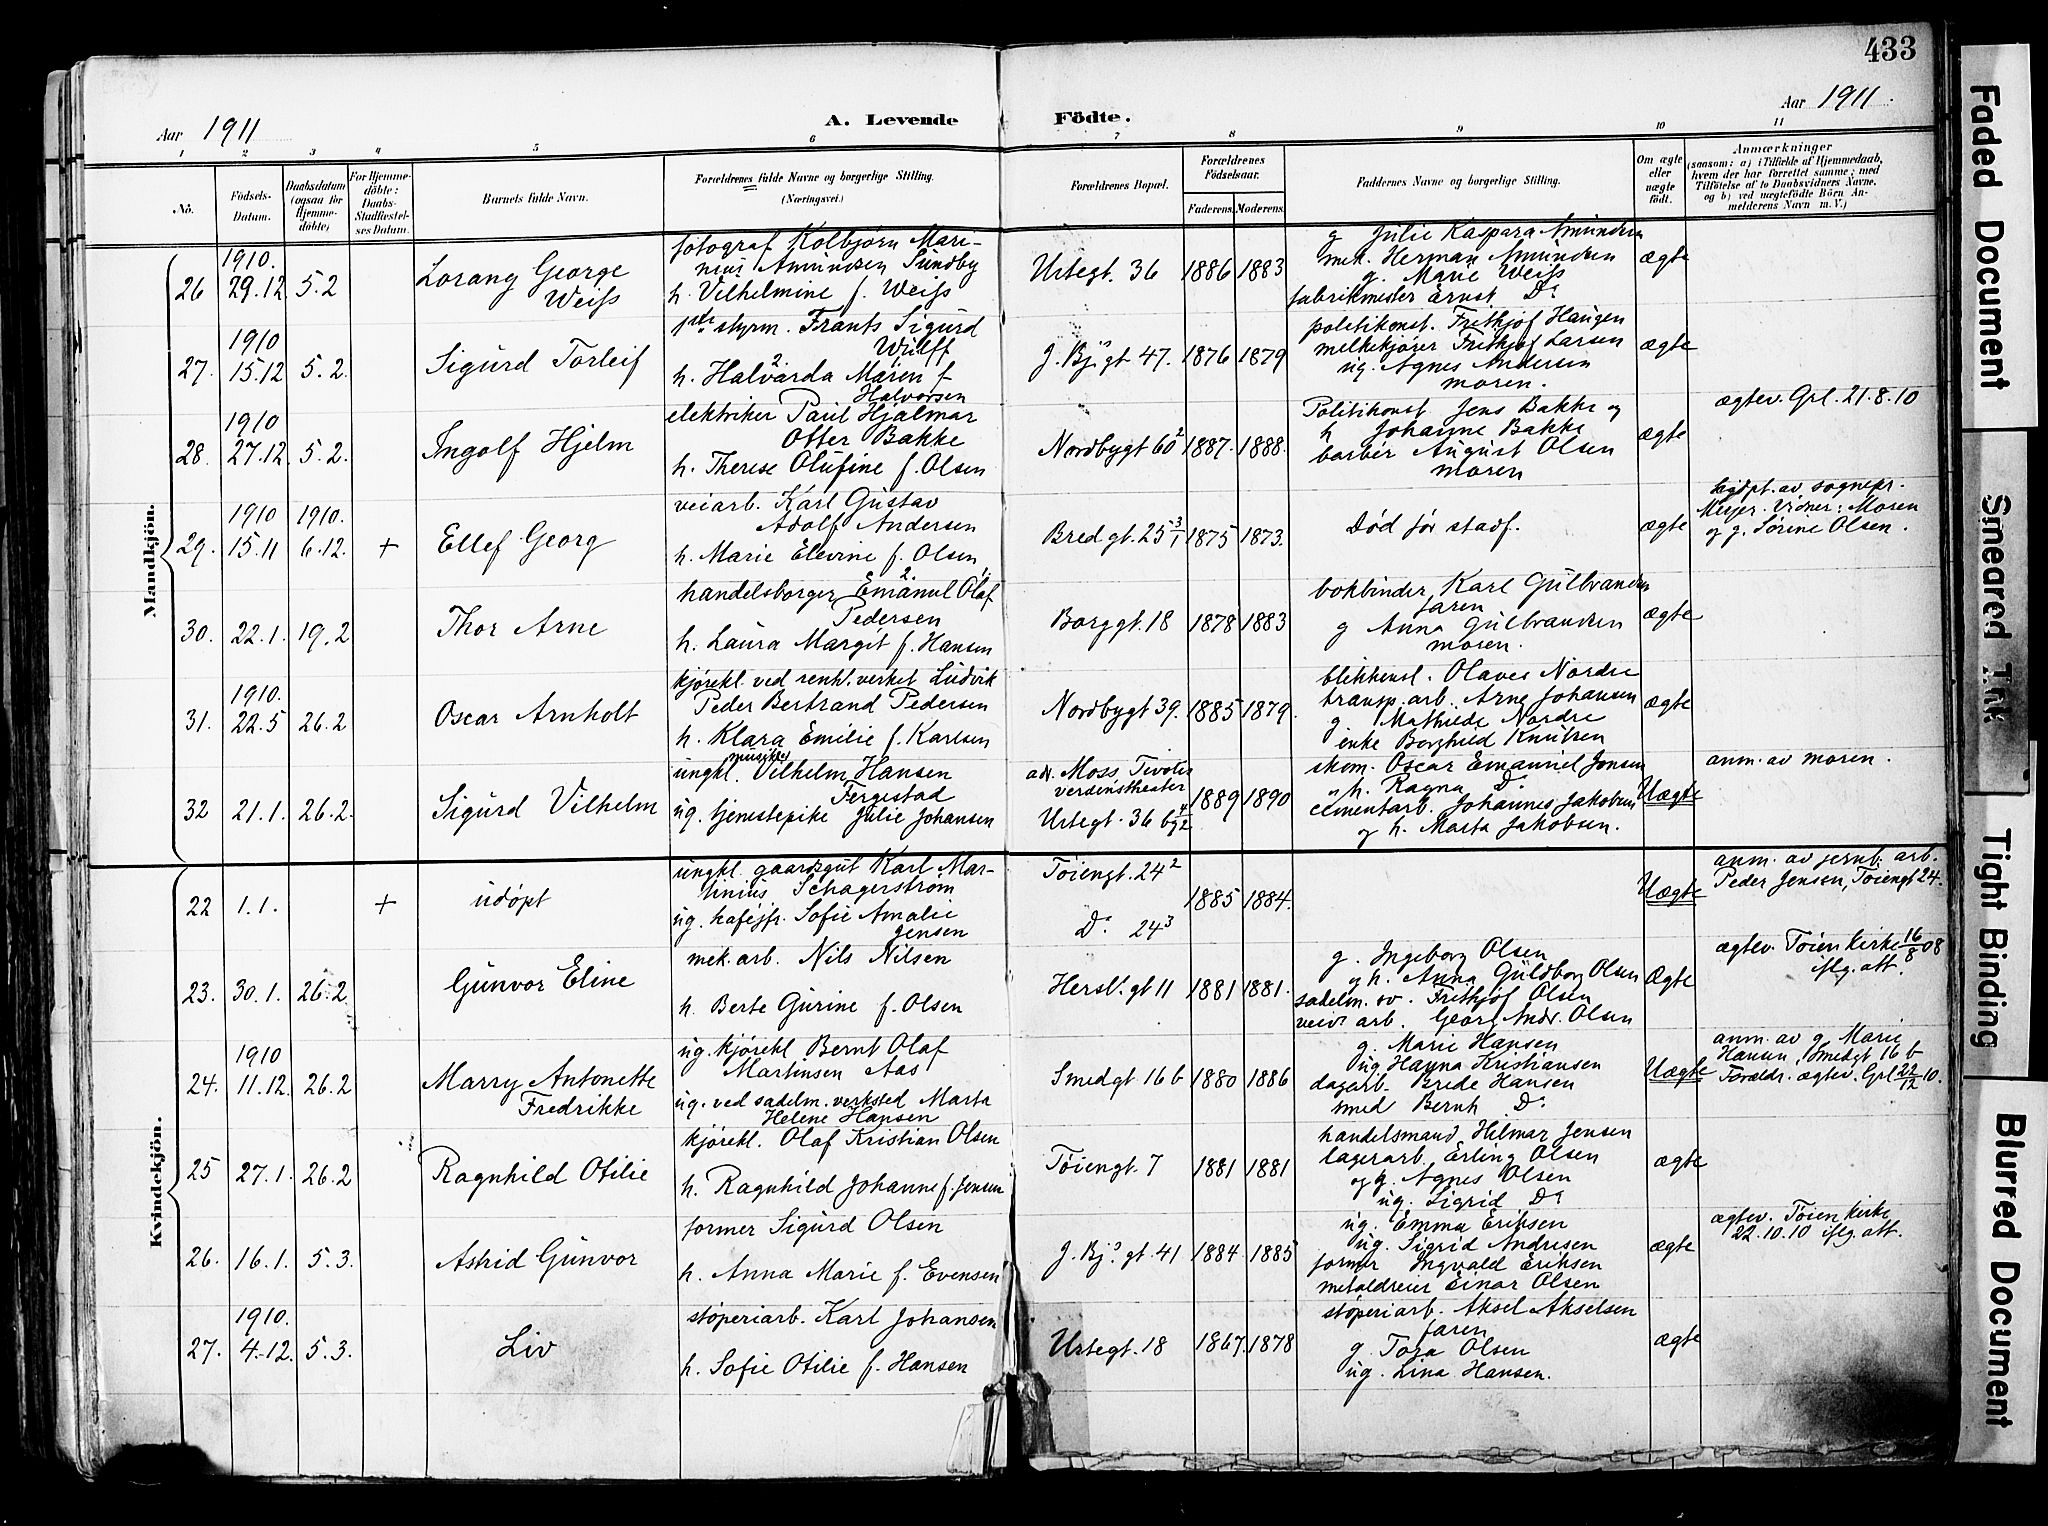 433
Aar 1911
A. Levende Födte.
Aar 1911.
1 2 3 4 5 6 7 8 9 10 11
No.
Födsels-Datum.
Daabsdatum (ogsaa for Hjemmedöbte)
For Hjemmedöbte: Daabs-Stadfæstelses Datum.
Barnets fulde Navn.
Forældrenes fulde Navne og borgerlige Stilling. (Næringsvei.)
Forældrenes Bopæl.
Forældrenes Födselsaar.
Faderens. Moderens.
Faddernes Navne og borgerlige Stilling.
Om ægte eller uægte födt.
Anmærkninger
(saasom: a) i Tilfælde af Hjemmedaab,
hvem der har forrettet samme; med
Tilföielse af to Daabsvidners Navne.
og b) ved uægtefödte Börn An-
melderens Navn m. V.)
Mandkjön.
26 1910. 29.12 5.2
Lorang George
Weiss
fotograf Kolbjørn Mari-
nius Amundsen Sundby
h. Vilhelmine f. Weiss
Urtegt. 36 1886 1883
g Julie Kaspara Amundsen
mek. Herman Amundsen
g. Marie Weiss
fabrikmester Ernst Do
ægte
27. 1910 15.12 5.2.
Sigurd Torleif
1ste styrm. Frants Sigurd
Wulff
h. Halvarda Maren f
Halvorsen
J. Bj.s gt 47. 1876 1879
politikonst. Frithjof Haugen
melkekjører Frithjof Larsen
ug. Agnes Andersen
moren.
ægte
28. 1910 27.12 5.2.
Ingolf Hjelm
elektriker Paul Hjalmar
Otter Bakke
h. Therese Olufine f. Olsen
Nordbygt 60 2 1887. 1888.
Politikonst. Jens Bakke og
h Johanne Bakke
barber August Olsen
moren
ægte
ægtev. Grl. 21.8.10
29. 1910 15.11 1910. 6.12. +
Ellef Georg
veiarb. Karl Gustav
Adolf Andersen
h. Marie Elevine f. Olsen
Bredgt. 25 3/1 1875 1873.
Død før stadf.
ægte
hjdpt. av sognepr.
Meyer. Vidner: Moren
og g. Sørine Olsen.
30. 22.1. 19.2
Thor Arne
handelsborger Emanuel Olaf
Pedersen
h. Laura Margit f. Hansen
Borggt. 18 1878 1883
bokbinder Karl Gulbrandsen
faren
g Anna Gulbrandsen
moren.
ægte
31. 1910. 22.5 26.2
Oscar Arnholt
kjørekl. ved renh.verket Ludvik
Peder Bertrand Pedersen
h. Klara Emilie f. Karlsen
Nordbygt 39. 1885 1879.
blikkensl. Olaves Nordre
transp. arb. Arne Johansen
g. Mathilde Nordre
enke Borghild Knutsen
ægte
32 21.1. 26.2.
Sigurd Vilhelm
musiker
ungkl. Vilhelm Hansen
Fergestad
ug. tjenestepike Julie Johansen
adr. Moss, Tivolis
verdenstheater
Urtegt. 36 b 1889 1890
skom. Oscar Emanuel Jonsen
h. Ragna Do
cementarb. Johannes Jakobsen
og h. Marta Jakobsen.
Uægte
anm. av moren.
Kvindekjön.
22 1.1. +
udøpt
ungkl. gaardsgut Karl Mar-
tinius Schagerström
ug. kaféjfr. Sofie Amalie
Jensen
Tøiengt. 24 2
Do 24 3
1885 1884.
Uægte
anm. av jernb. arb.
Peder Jensen, Tøiengt 24.
23. 30.1. 26.2.
Gunvor Eline
mek. arb. Nils Nilsen
h. Berte Gurine f. Olsen
Hersl. gt 11 1881 1881.
g. Ingeborg Olsen
og h. Anna Guldborg Olsen
sadelm. sv. Frithjof Olsen
arb. Georg Andr. Olsen
Ægte
ægtev. Tøien kirke 16/8 08
iflg. att.
24. 1910 11.12. 26.2
Marry Antonette
Fredrikke
ug. kjørekl Bernt Olaf
Martinsen Aas
ug. ved sadelm. verksted Marta
Helene Hansen
Smedgt 16 b 1880 1886
g. Marie Hansen
ug. Hanna Kristiansen
dagarb. Brede Hansen
smed Bernh Do
Uægte
anm. av g. Marie
Hansen, Smedgt 16 b
Forældr. ægtev. Grl 22/12 10.
25 27.1. 26.2
Ragnhild Otilie
kjørekl. Olaf Kristian Olsen
h. Ragnhild Johanne f. Jensen
Tøiengt. 7 1881 1881
handelsmand Hilmar Jensen
lagerarb. Erling Olsen
og g. Agnes Olsen
ug. Sigrid Do
ægte
26. 16.1. 5.3.
Astrid Gunvor
former Sigurd Olsen
h. Anna Marie f. Evensen
J. Bj.s gt. 41 1884. 1885
ug. Emma Eriksen
ug. Sigrid Andresen
former Ingvald Eriksen
metaldreier Einar Olsen
ægte
ægtev. Tøien kirke
22.10.10 iflg. att.
27. 1910. 4.12. 5.3.
Liv
støperiarb. Karl Johansen
h. Sofie Otilie f. Hansen
Urtegt. 18 1867. 1878
støperiarb. Aksel Akselsen
faren
g. Tora Olsen
ug. Lina Hansen.
ægte
Faded Document
Smeared Ink
Tight Binding
Blurred Document